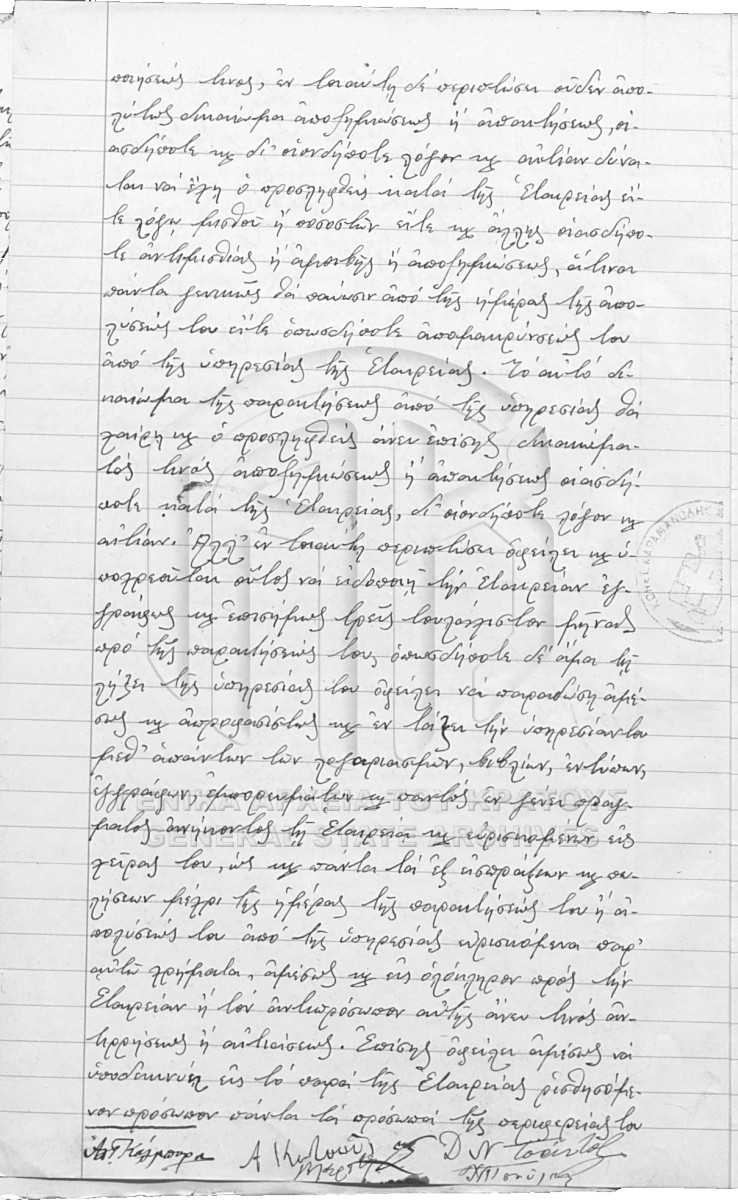 ποιήσεώς τινος, ἐν τοιαύτῃ δὲ περιπτώσει οὐδὲν ἀπο-
λύτως δικαίωμα ἀποζημιώσεως ἢ ἀπαιτήσεως, οἱ-
ασδήποτε κ δι' οἱονδήποτε λόγον κ αἰτίαν δύνα-
ται νὰ ἔχῃ ὁ προσληφθεὶς κατὰ τῆς Ἑταιρείας εἴ-
τε λόγῳ μισθοῦ ἢ ποσοστῶν εἴτε κ ἄλλης οἱασδήπο-
τε ἀντιμισθίας ἢ ἀμοιβῆς ἢ ἀποζημιώσεως, ἅτινα
πάντα γενικῶς θὰ παύωσιν ἀπὸ τῆς ἡμέρας τῆς ἀπο-
λύσεώς του εἴτε ὁπωσδήποτε ἀπομακρύνσεώς του
ἀπὸ τῆς ὑπηρεσίας τῆς Ἑταιρείας. Τὸ αὐτὸ δι-
καίωμα τῆς παραιτήσεως ἀπὸ τῆς ὑπηρεσίας θὰ
χαίρῃ κ ὁ προσληφθεὶς ἄνευ ἐπίσης δικαιώμα-
τός τινος ἀποζημιώσεως ἢ ἀπαιτήσεως οἱασδή-
ποτε κατὰ τῆς Ἑταιρείας, δι' οἱονδήποτε λόγον κ
αἰτίαν. Ἀλλ' ἐν τοιαύτῃ περιπτώσει ὀφείλει κ ὑ-
ποχρεοῦται οὗτος νὰ εἰδοποιῇ τὴν Ἑταιρείαν ἐγ-
γράφως κ ἐπισήμως τρεῖς τουλάχιστον μῆνας
πρὸ τῆς παραιτήσεώς του, ὁπωσδήποτε δὲ ἅμα τῇ
λήξει τῆς ὑπηρεσίας του ὀφείλει νὰ παραδώσῃ ἀμέ-
σως κ ἀπροφασίστως κ ἐν τάξει τὴν ὑπηρεσίαν του
μεθ' ἁπάντων τῶν λογαριασμῶν, βιβλίων, ἐντύπων,
ἐγγράφων, ἐμπορευμάτων κ παντὸς ἐν γένει πράγ-
ματος ἀνήκοντος τῇ Ἑταιρείᾳ κ εὑρισκομένων εἰς
χεῖρας του, ὡς κ πάντα τὰ ἐξ εἰσπράξεων κ πω-
λήσεων μέχρι τῆς ἡμέρας τῆς παραιτήσεώς του ἢ ἀ-
πολύσεώς του ἀπὸ τῆς ὑπηρεσίας εὑρισκόμενα παρ'
αὐτῷ χρήματα, ἀμέσως κ εἰς ὁλόκληρον πρὸς τὴν
Ἑταιρείαν ἢ τὸν ἀντιπρόσωπον αὐτῆς ἄνευ τινὸς ἀν-
τιρρήσεως ἢ αἰτιάσεως. Ἐπίσης ὀφείλει ἀμέσως νὰ
ὑποδεικνύῃ εἰς τὸ παρὰ τῆς Ἑταιρείας ὁρισθησόμε-
νον πρόσωπον πάντα τὰ πρόσωπα τῆς περιφερείας του
ΓΕΝΙΚΑ ΑΡΧΕΙΑ ΤΟΥ ΚΡΑΤΟΥΣ
GENERAL STATE ARCHIVES